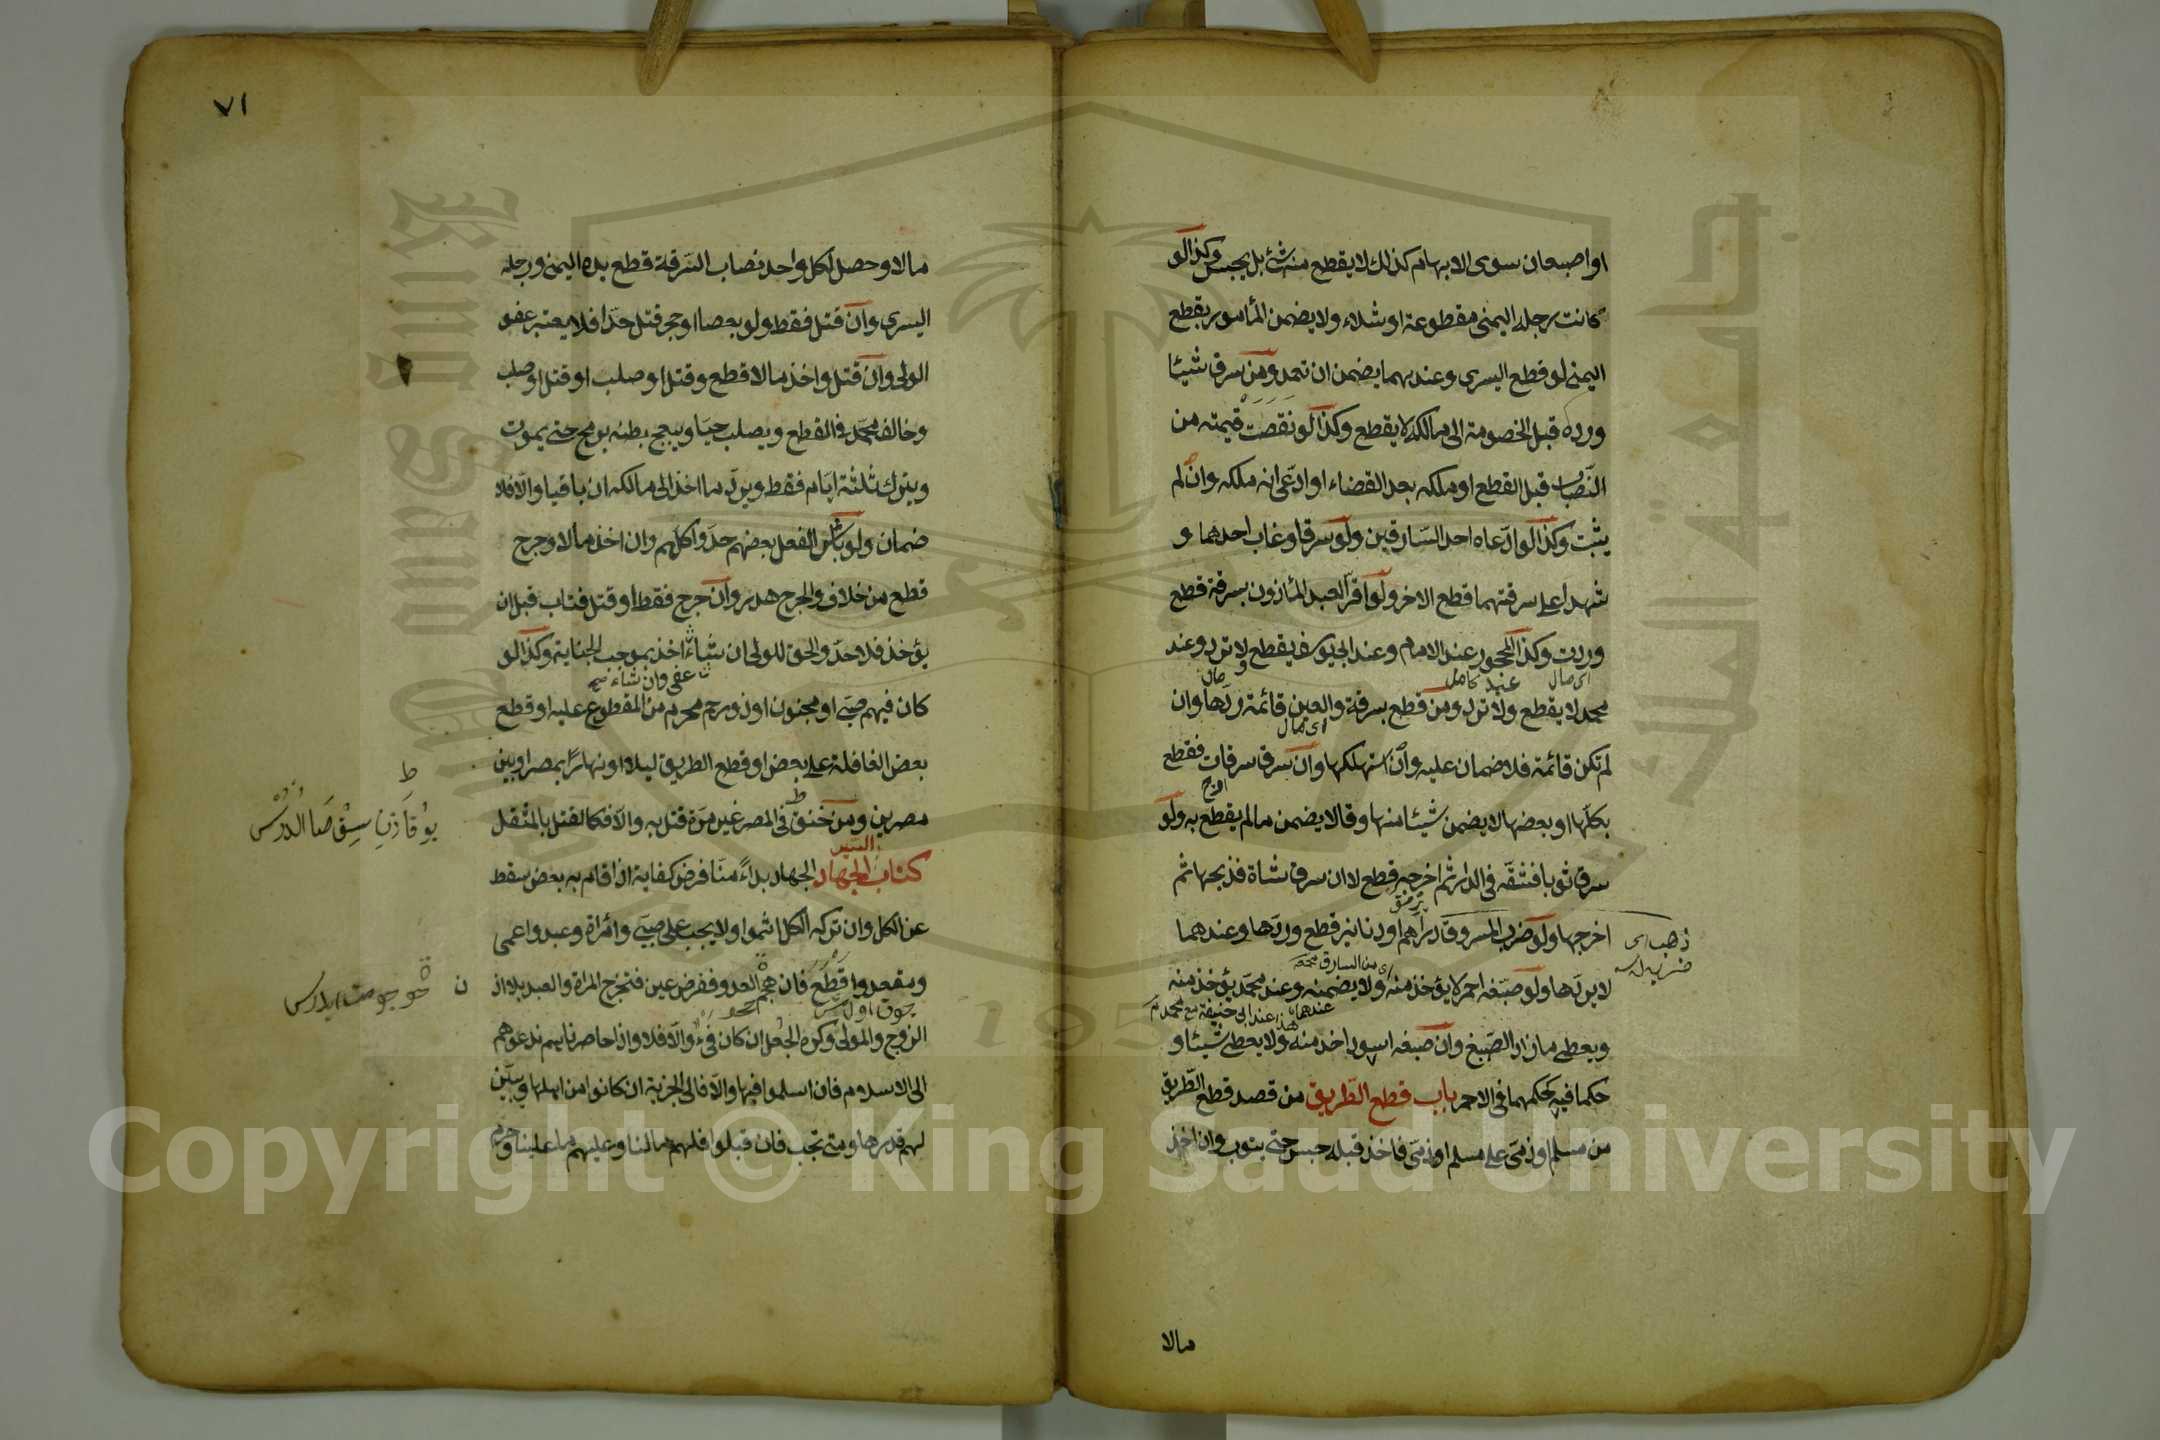 او اصبعان سوى الابهام كذلك لا يقطع منه شئ بل يحبس وكذا لو
كانت رجله اليمنى مقطوعة او شلاء ولا يضمن المأمور بقطع
اليمنى لو قطع اليسرى وعندهما يضمن ان تعمد ومن سرق شيئا
ورده قبل الخصومة الى مالكه لا يقطع وكذا لو نقصت قيمته من
النصاب قبل القطع او ملكه بعد القضاء او ادعى انه ملكه وان لم
يثبت وكذا لو ادعاه احد السارقين ولو سرقا وغاب احدهما و
شهدا على سرقتهما قطع الاخر ولو اقر العبد المأذون بسرقة قطع
وردت وكذا المحجور عند الامام وعند ابى يوسف يقطع ولا ترد وعند
اى مال عبد كامل
محمد لا يقطع ولا ترد ومن قطع بسرقة والعين قائمة ردها وان
اى مال
لم تكن قائمة فلا ضمان عليه وان استهلكها وان سرق سرقات فقطع
بكلها او بعضها لا يضمن شيئا منها وقالا يضمن ما لم يقطع به ولو
سرق ثوبا فشقه فى الدار ثم اخرجه قطع لا ان سرق شاة فذبحها ثم
اخرجها ولو ضرب المسروق دراهم او دنانير قطع وردها وعندهما
ذهب اى
اى من السارق
لا يردها ولو صبغه احمر لا يؤخذ منه ولا يضمنه وعند محمد يؤخذ منه
هذا عند ابى حنيفة مع محمد
ويعطى ما زاد الصبغ وان صبغه اسود اخذ منه ولا يعطى شيئا و
حكما فيه كحكمهما فى الاحمر باب قطع الطريق من قصد قطع الطريق
من مسلم او ذمى على مسلم او ذمى فاخذ قبله حبس حتى يتوب وان اخذ
مالا
٧١
مالا وحصل لكل واحد نصاب السرقة قطع يده اليمنى ورجله
اليسرى وان قتل فقط ولو بعصا او حجر قتل حدا فلا يعتبر عفو
الولى وان قتل واخذ مالا قطع وقتل او صلب او قتل او صلب
وخالف محمد فى القطع ويصلب حيا ويبعج بطنه برمح حتى يموت
ويترك ثلثة ايام فقط ويرد ما اخذ الى مالكه ان باقيا والا فلا
ضمان ولو باشر الفعل بعضهم حدوا كلهم وان اخذ مالا وجرح
قطع من خلاف والجرح هدر وان جرح فقط او قتل فتاب قبل ان
يؤخذ فلا حد والحق للولى ان شاء اخذ بموجب الجناية وكذا لو
عفى وان شاء صح
كان فيهم صبى او مجنون او ذو رحم محرم من المقطوع عليه او قطع
بعض القافلة على بعض او قطع الطريق ليلا او نهارا بمصر او بين
مصرين ومن خنق فى المصر غير مرة قتل به والا فكالقتل بالمثقل
السير
كتاب الجهاد الجهاد بداءً منا فرض كفاية اذا قام به بعض سقط
عن الكل وان تركه الكل اثموا ولا يجب على صبى وامراة وعبد واعمى
ومقعد واقطع فان هجم العدو ففرض عين فتخرج المراة والعبد بلا اذن
الزوج والمولى وكره الجعل ان كان فئ والا فلا واذا حاصرناهم ندعوهم
الى الاسلام فان اسلموا فبها والا فالى الجزية ان كانوا من اهلها وبين
لهم قدرها ومتى تجب فان قبلوا فلهم ما لنا وعليهم ما علينا وحرم
Copyright © King Saud University
King Saud University
جامعة الملك سعود
1957